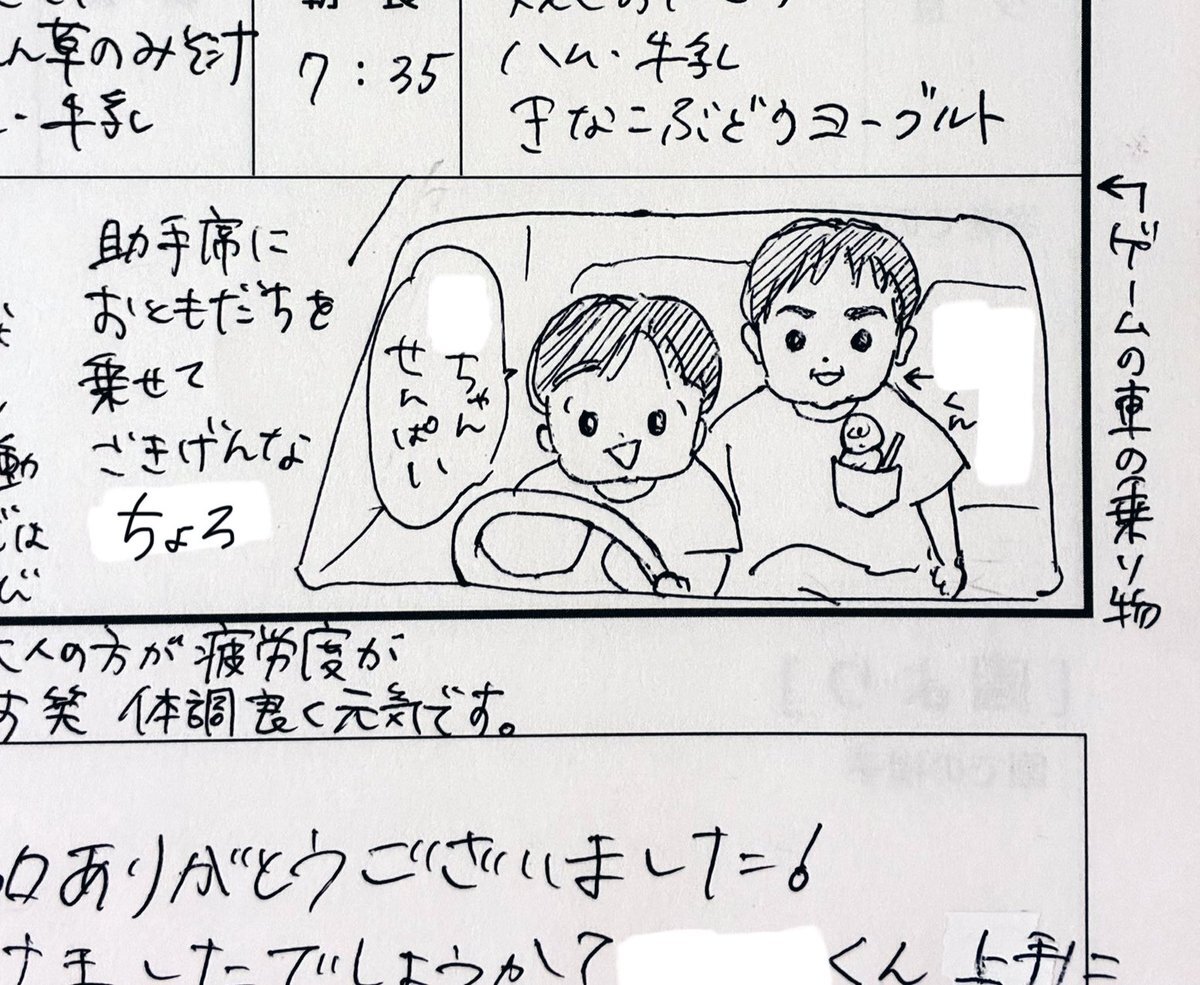 ん草のみそ汁
・牛乳
7:35
ハム・牛乳
きなこぶどうヨーグルト
助手席に
おともだちを
乗せて
ごきげんな
ちょろ
ちゃん
せんぱい
←
くん
←ゲームの車の乗り物
動
では
び
大人の方が疲労度が
す笑 体調良く元気です。
ありがとうございました!
ましたでしょうか?
くん 上手に